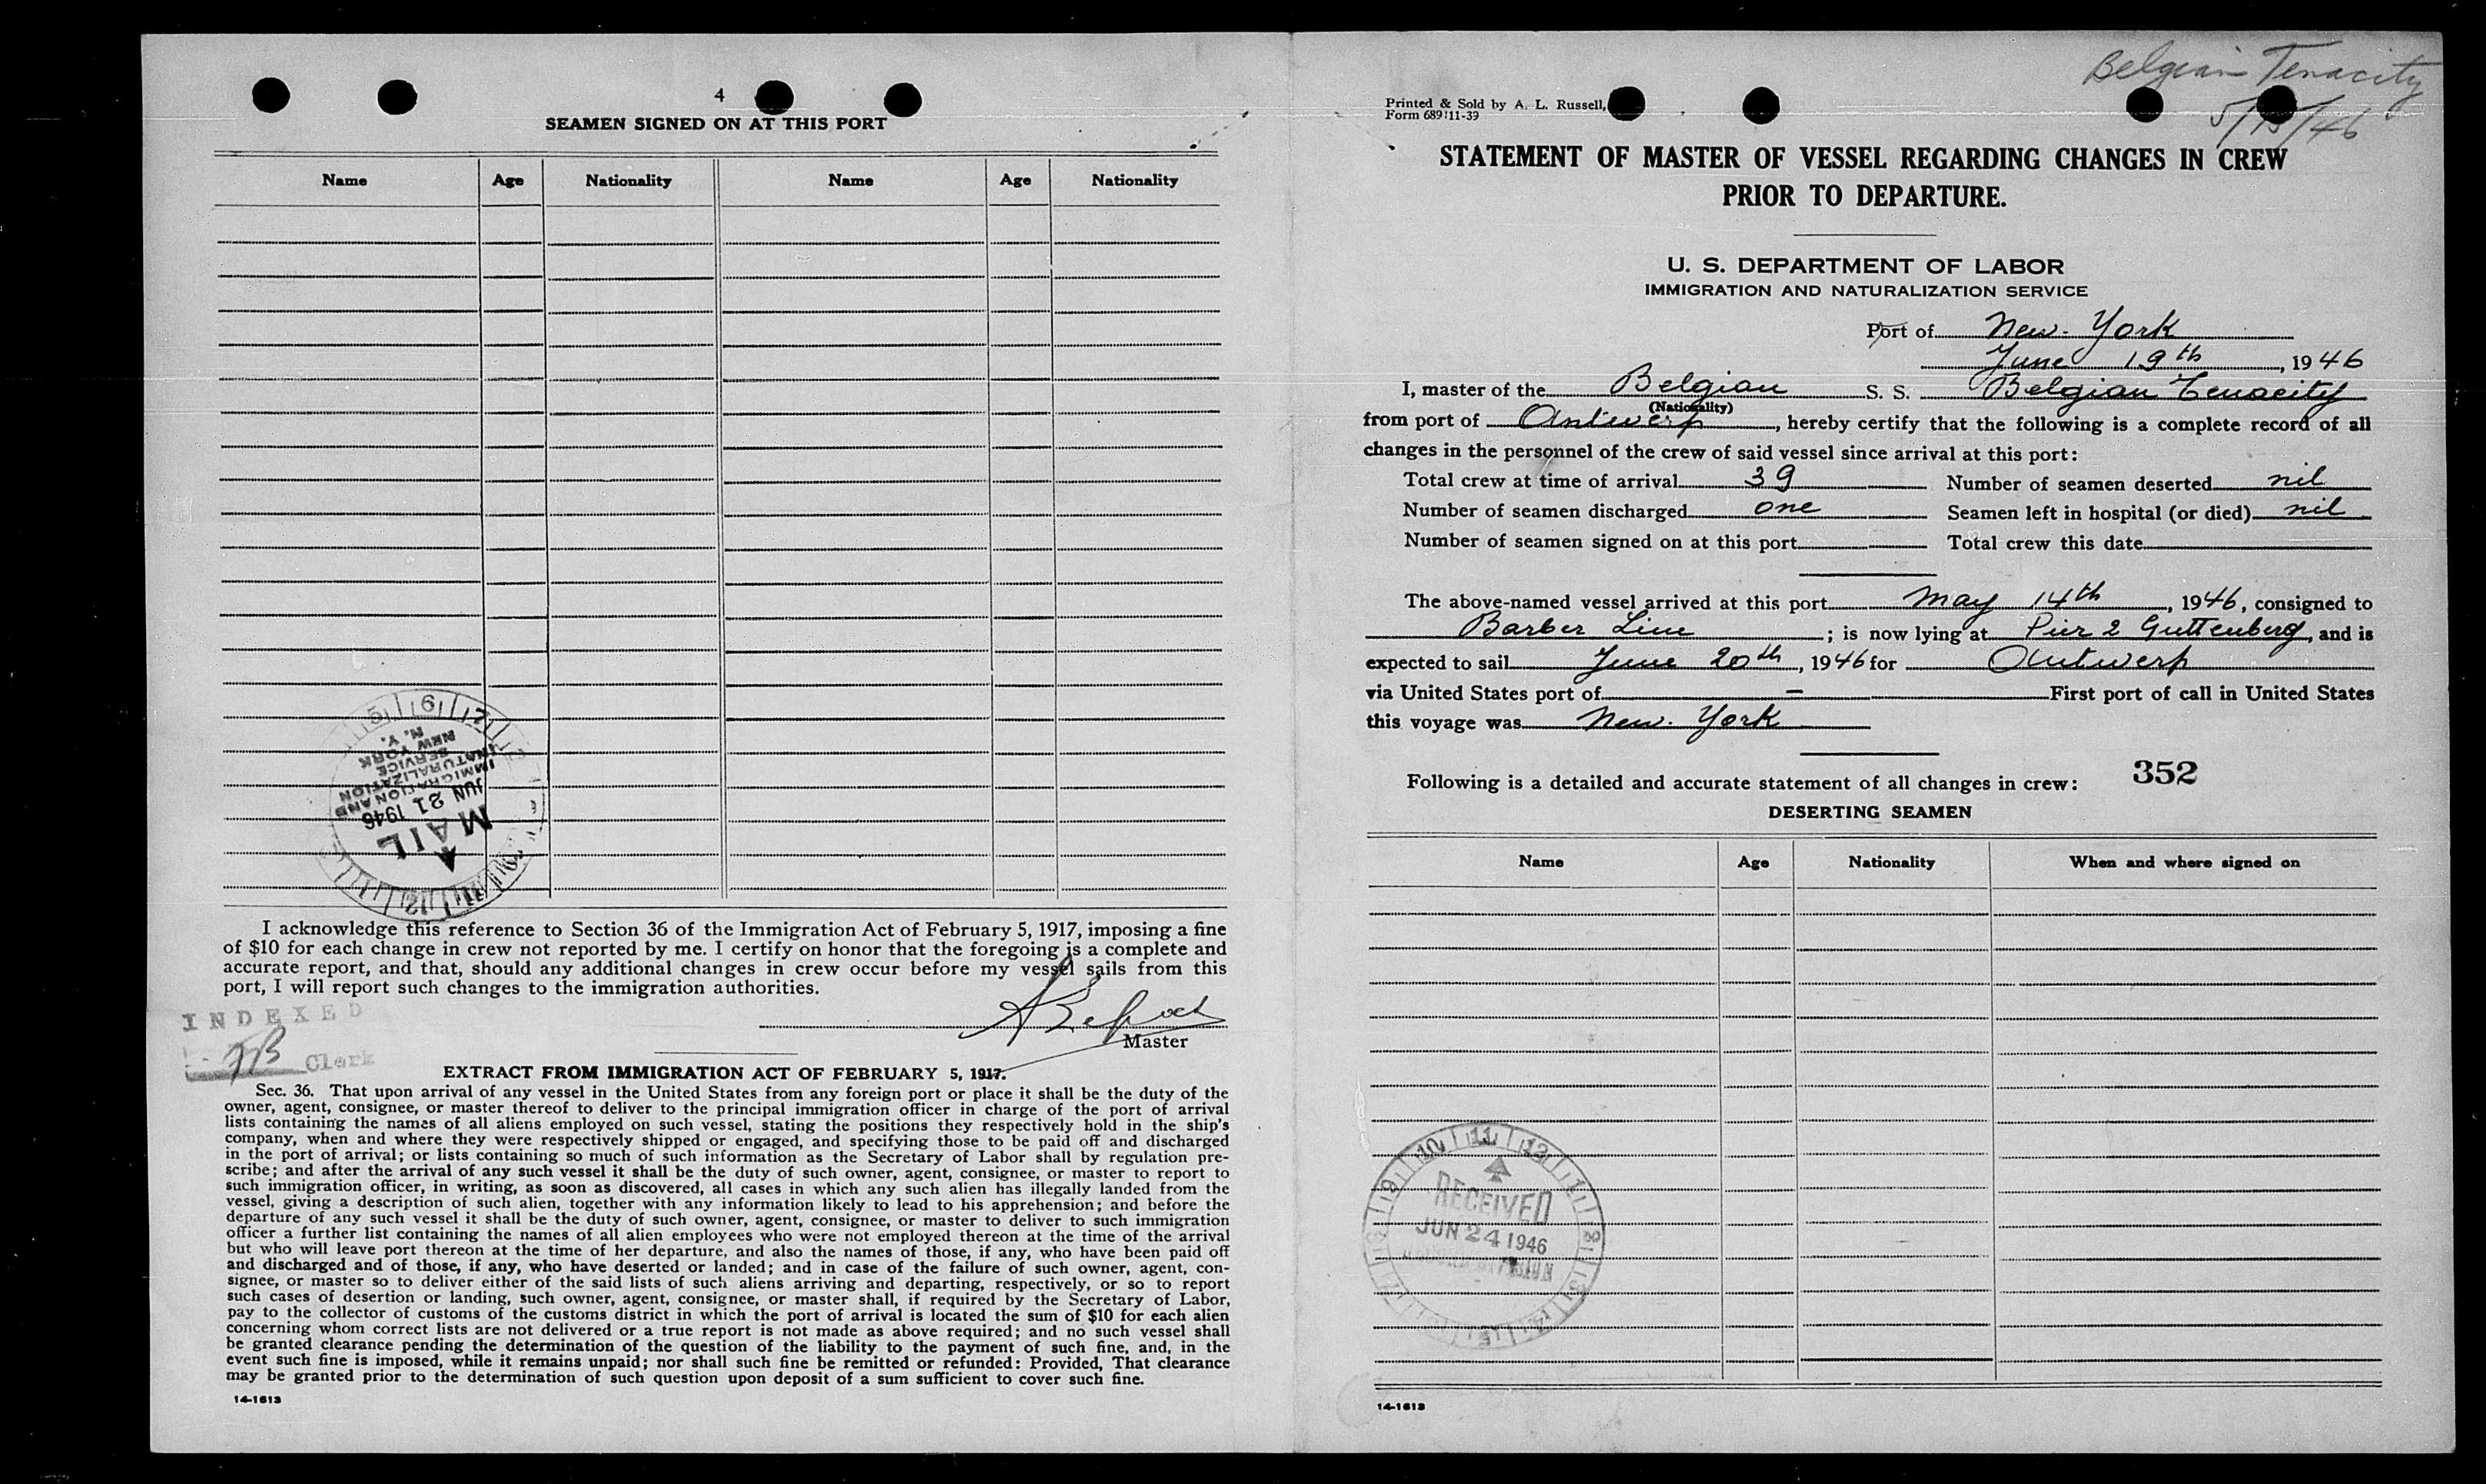 4
SEAMEN SIGNED ON AT THIS PORT
Name Age Nationality Name Age Nationality
5 6 7
NEW YORK
N. Y.
IMMIGRATION AND
NATURALIZATION
SERVICE
JUN 21 1946
MAIL
I acknowledge this reference to Section 36 of the Immigration Act of February 5, 1917, imposing a fine
of $10 for each change in crew not reported by me. I certify on honor that the foregoing is a complete and
accurate report, and that, should any additional changes in crew occur before my vessel sails from this
port, I will report such changes to the immigration authorities.
INDEXED
Clerk
Master
EXTRACT FROM IMMIGRATION ACT OF FEBRUARY 5, 1917.
Sec. 36. That upon arrival of any vessel in the United States from any foreign port or place it shall be the duty of the
owner, agent, consignee, or master thereof to deliver to the principal immigration officer in charge of the port of arrival
lists containing the names of all aliens employed on such vessel, stating the positions they respectively hold in the ship's
company, when and where they were respectively shipped or engaged, and specifying those to be paid off and discharged
in the port of arrival; or lists containing so much of such information as the Secretary of Labor shall by regulation pre-
scribe; and after the arrival of any such vessel it shall be the duty of such owner, agent, consignee, or master to report to
such immigration officer, in writing, as soon as discovered, all cases in which any such alien has illegally landed from the
vessel, giving a description of such alien, together with any information likely to lead to his apprehension; and before the
departure of any such vessel it shall be the duty of such owner, agent, consignee, or master to deliver to such immigration
officer a further list containing the names of all alien employees who were not employed thereon at the time of the arrival
but who will leave port thereon at the time of her departure, and also the names of those, if any, who have been paid off
and discharged and of those, if any, who have deserted or landed; and in case of the failure of such owner, agent, con-
signee, or master so to deliver either of the said lists of such aliens arriving and departing, respectively, or so to report
such cases of desertion or landing, such owner, agent, consignee, or master shall, if required by the Secretary of Labor,
pay to the collector of customs of the customs district in which the port of arrival is located the sum of $10 for each alien
concerning whom correct lists are not delivered or a true report is not made as above required; and no such vessel shall
be granted clearance pending the determination of the question of the liability to the payment of such fine, and, in the
event such fine is imposed, while it remains unpaid; nor shall such fine be remitted or refunded: Provided, That clearance
may be granted prior to the determination of such question upon deposit of a sum sufficient to cover such fine.
14-1613
Belgian Tenacity
5/15/46
Printed & Sold by A. L. Russell,
Form 689 11-39
STATEMENT OF MASTER OF VESSEL REGARDING CHANGES IN CREW
PRIOR TO DEPARTURE.
U. S. DEPARTMENT OF LABOR
IMMIGRATION AND NATURALIZATION SERVICE
Port of New-York
June 19th, 1946
I, master of the Belgian S. S. Belgian Tenacity
(Nationality)
from port of Antwerp, hereby certify that the following is a complete record of all
changes in the personnel of the crew of said vessel since arrival at this port:
Total crew at time of arrival 39 Number of seamen deserted nil
Number of seamen discharged one Seamen left in hospital (or died) nil
Number of seamen signed on at this port Total crew this date
The above-named vessel arrived at this port May 14th, 1946, consigned to
Barber Line; is now lying at Pier 2 Guttenberg, and is
expected to sail June 20th, 1946 for Antwerp
via United States port of - First port of call in United States
this voyage was New-York
352
Following is a detailed and accurate statement of all changes in crew:
DESERTING SEAMEN
Name Age Nationality When and where signed on
9 10 11 12 1
RECEIVED
JUN 24 1946
14-1613